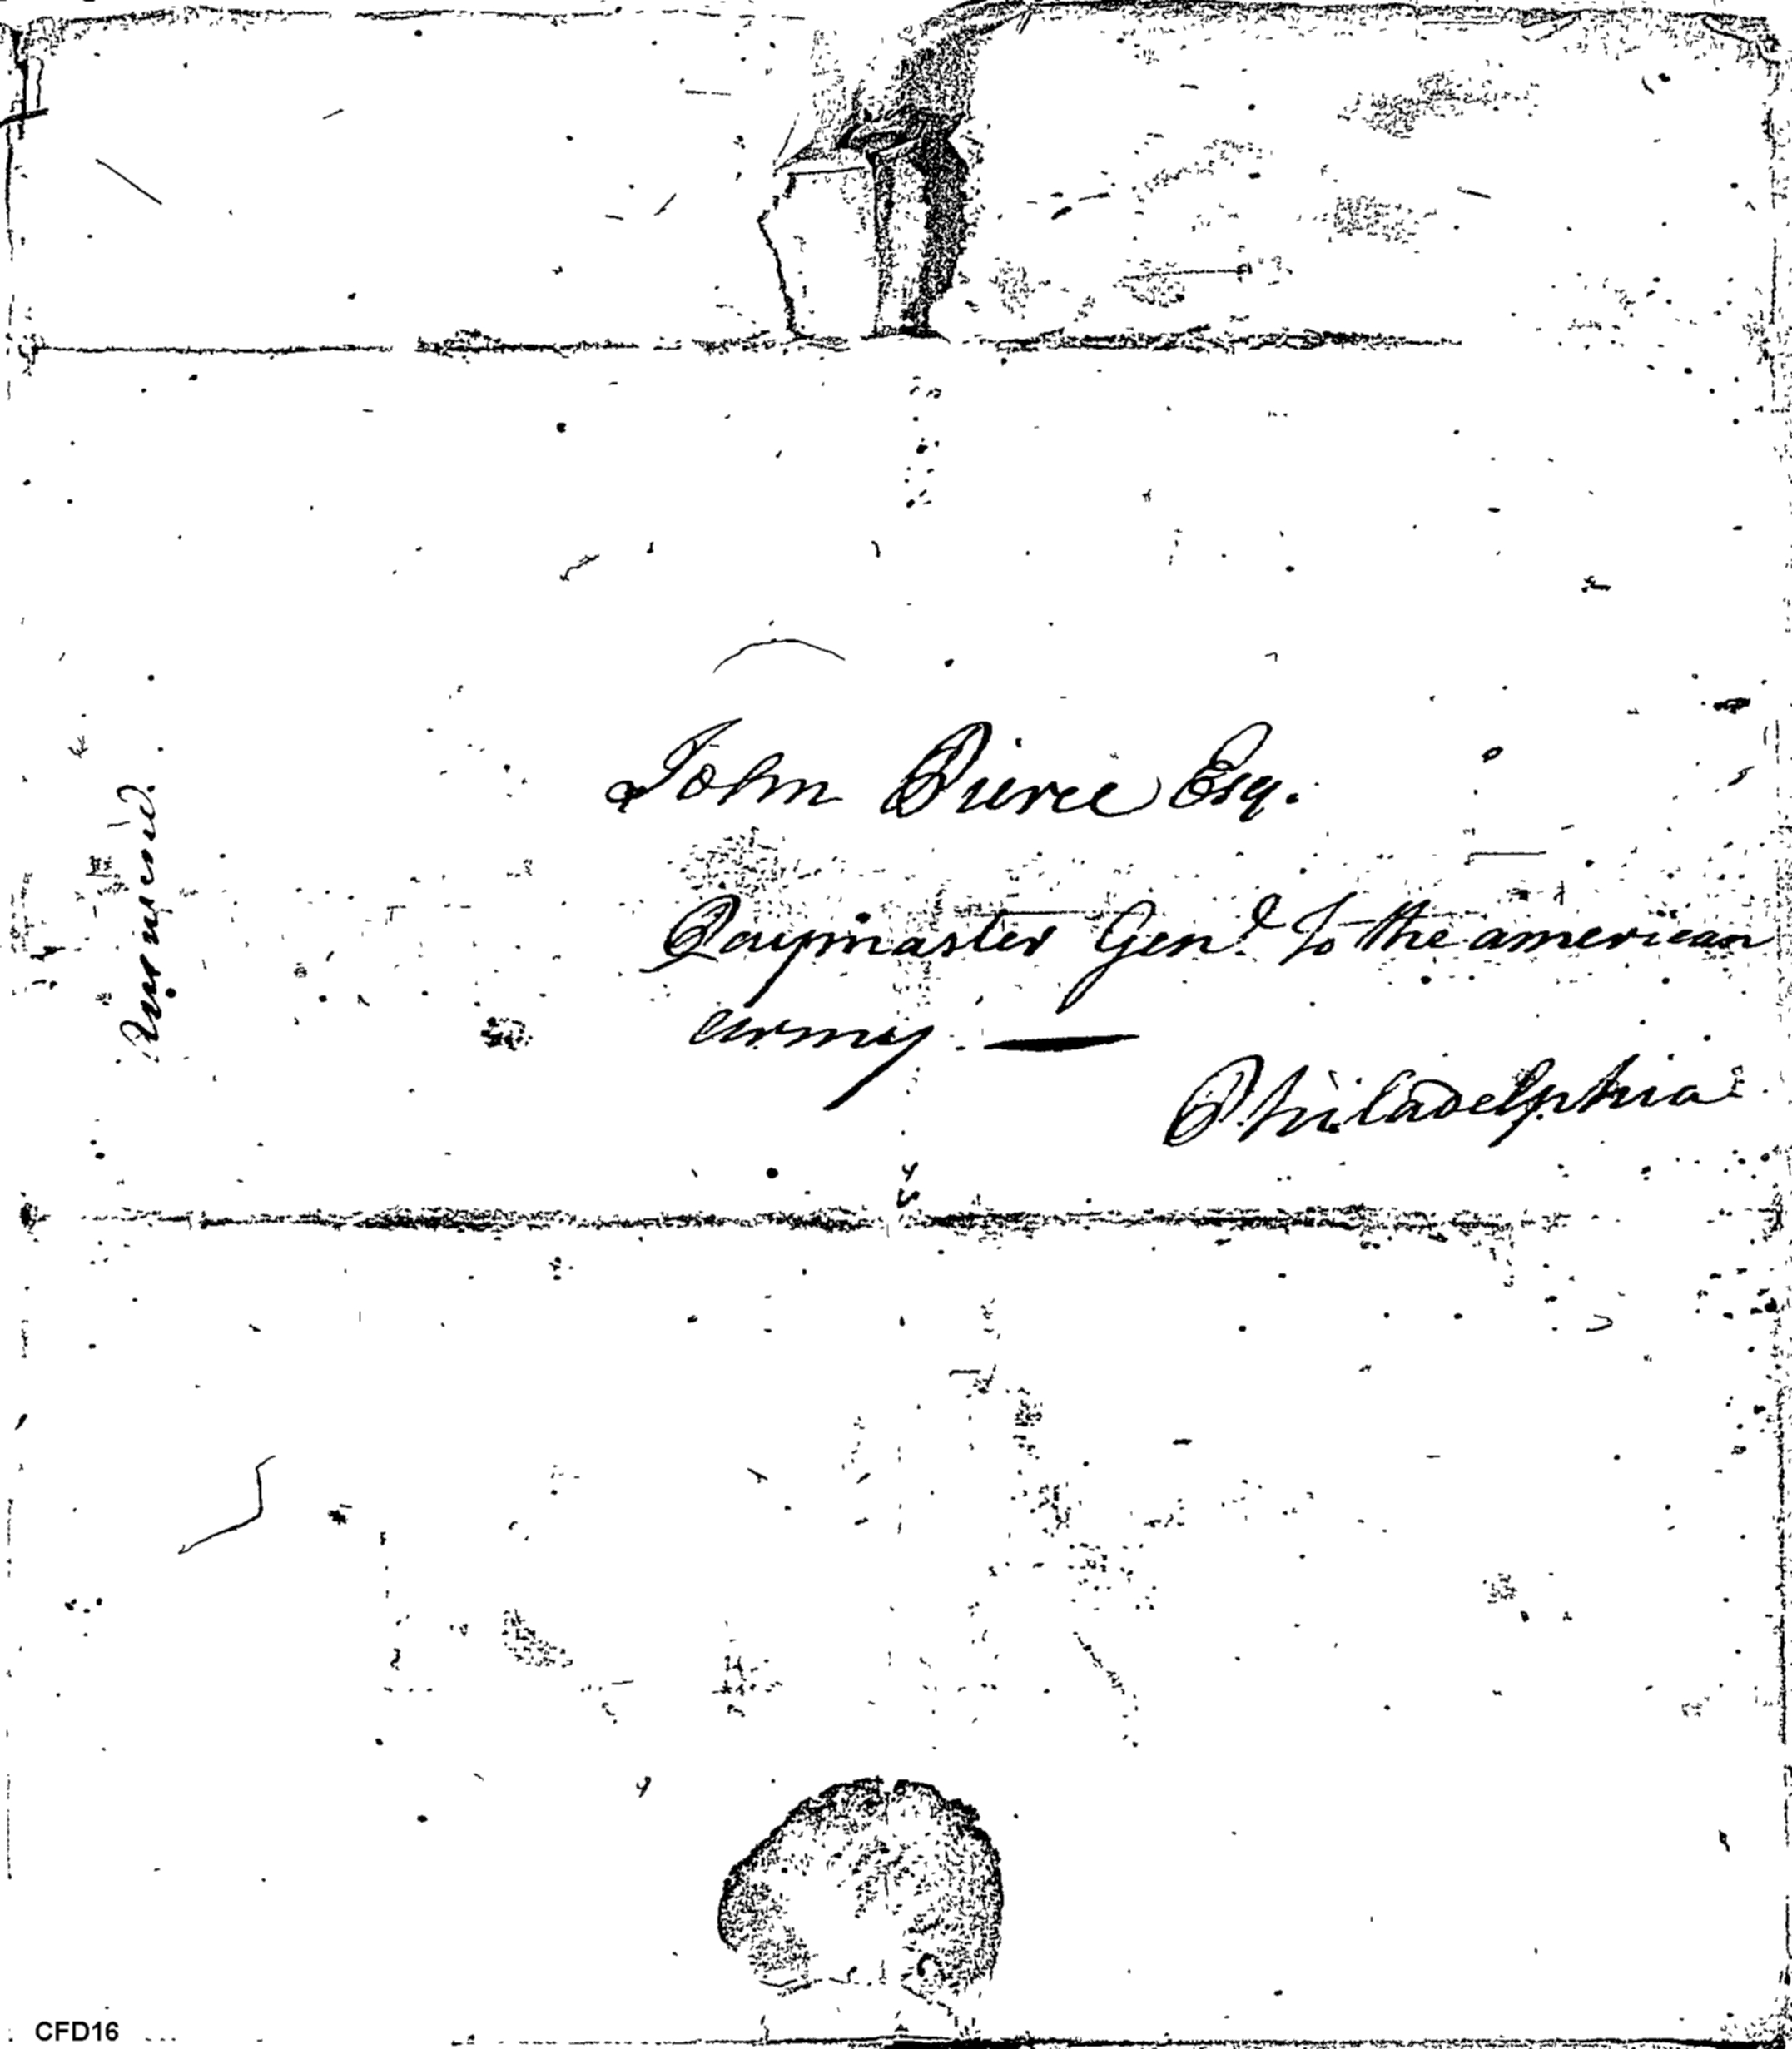 John Pierce Esq.
Paymaster Genl. to the american
army. —
Philadelphia
Answered.
CFD16